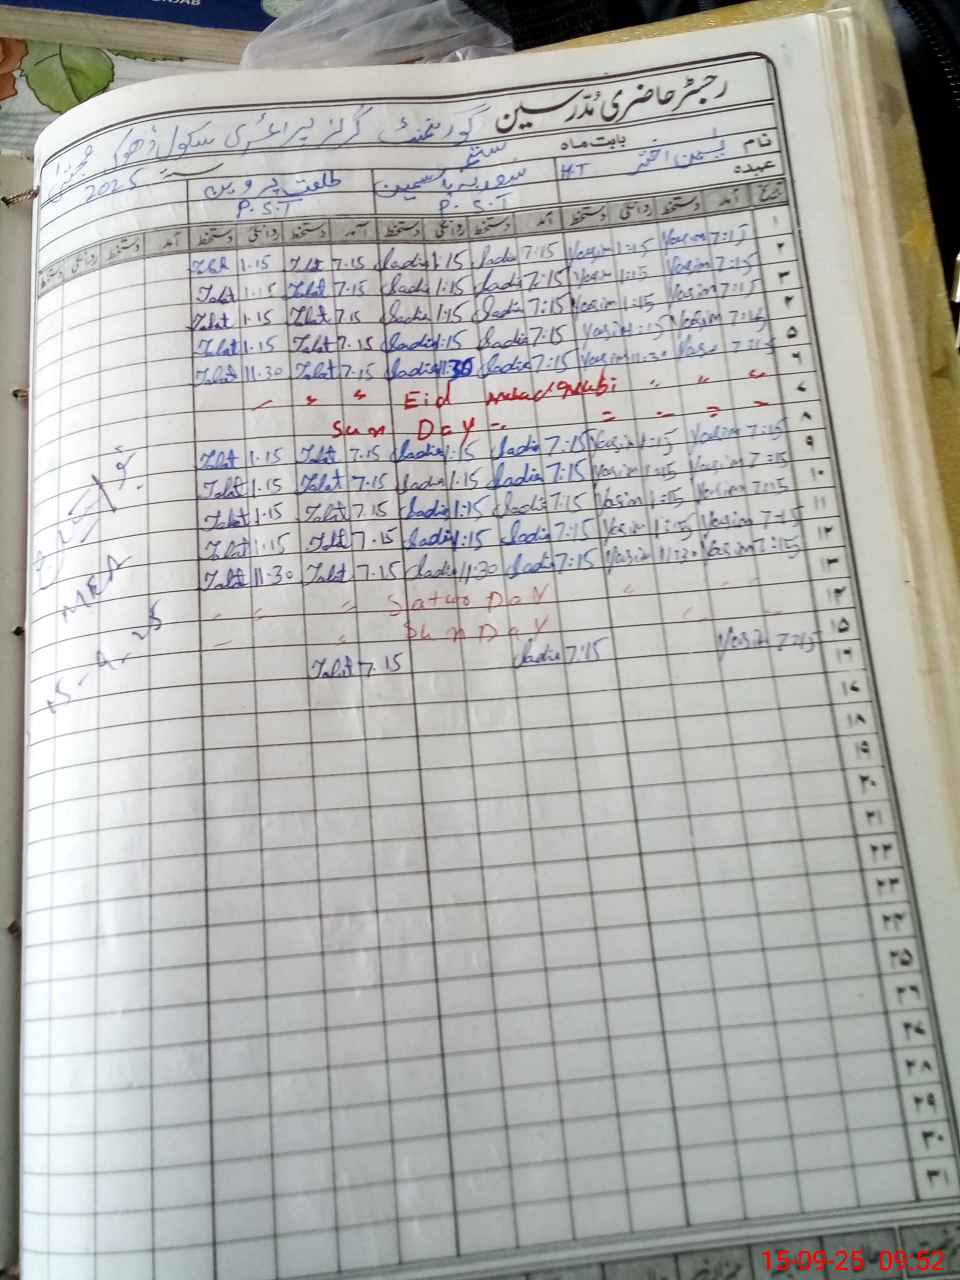 رجسٹر حاضری مدرسین گورنمنٹ گرلز پرائمری سکول ڈھوک
بابت ماہ ستمبر سنہ 2025
نام یاسمین اختر سعدیہ یاسمین طلعت پروین
عہدہ H.T P.S.T P.S.T
تاریخ آمد دستخط روانگی دستخط آمد دستخط روانگی دستخط آمد دستخط روانگی دستخط آمد دستخط روانگی دستخط
۱ 7:15 Yasim 1:15 Yasim 7:15 Sadia 1:15 Sadia 7.15 Talat 1.15 Talat
۲ 7:15 Yasim 1:15 Yasim 7:15 Sadia 1:15 Sadia 7.15 Talat 1.15 Talat
۳ 7:15 Yasim 1:15 Yasim 7:15 Sadia 1:15 Sadia 7.15 Talat 1.15 Talat
۴ 7:15 Yasim 1:15 Yasim 7:15 Sadia 1:15 Sadia 7.15 Talat 1.15 Talat
۵ 7:15 Yasim 11:30 Yasim 7:15 Sadia 11:30 Sadia 7.15 Talat 11.30 Talat
۶ " " " Eid Milad Nabi " " "
۷ Sun Day
۸ 7:15 Yasim 1:15 Yasim 7:15 Sadia 1:15 Sadia 7.15 Talat 1.15 Talat
۹ 7:15 Yasim 1:15 Yasim 7:15 Sadia 1:15 Sadia 7.15 Talat 1.15 Talat
۱۰ 7:15 Yasim 1:15 Yasim 7:15 Sadia 1:15 Sadia 7.15 Talat 1.15 Talat
۱۱ 7:15 Yasim 1:15 Yasim 7:15 Sadia 1:15 Sadia 7.15 Talat 1.15 Talat
۱۲ 7:15 Yasim 11:30 Yasim 7:15 Sadia 11:30 Sadia 7.15 Talat 11.30 Talat
۱۳ " " " Satur Day " " "
۱۴ " " Sun Day " "
۱۵ 7:15 Yasim 7:15 Sadia 7.15 Talat
۱۶
۱۷
۱۸
۱۹
۲۰
۲۱
۲۲
۲۳
۲۴
۲۵
۲۶
۲۷
۲۸
۲۹
۳۰
۳۱
15-09-25 09:52